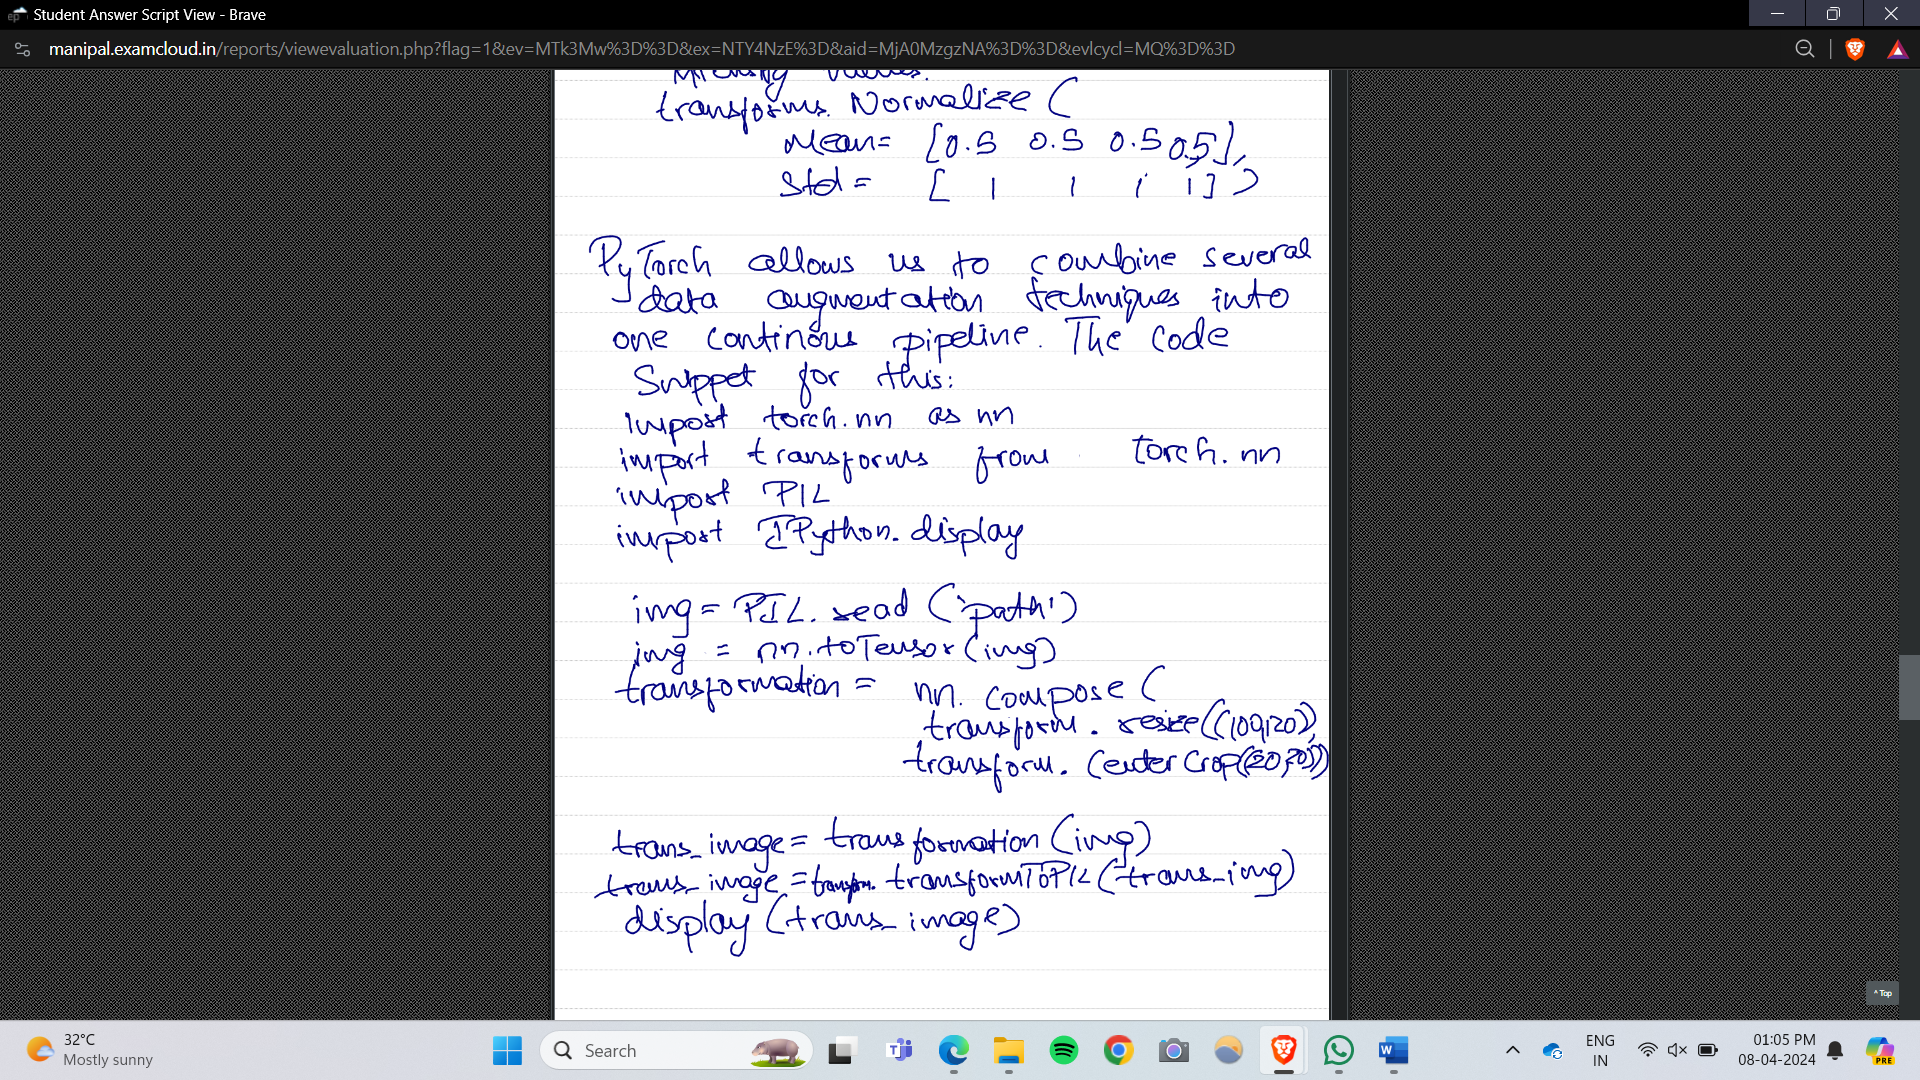 Student Answer Script View - Brave
manipal.examcloud.in/reports/viewevaluation.php?flag=1&ev=MTk3Mw%3D%3D&ex=NTY4NzE%3D&aid=MjA0MzgzNA%3D%3D&evlcycl=MQ%3D%3D
Intensity values.
transforms. Normalize (
Mean= [0.5 0.5 0.5 0.5],
Std = [ 1 1 1 1] )
PyTorch allows us to combine several
data augmentation techniques into
one continous pipeline. The code
Snippet for this:
import torch.nn as nn
import transforms from torch.nn
import PIL
import IPython.display
img = PIL. read ('path')
img = nn.toTensor (img)
transformation = nn. compose (
transform. resize((100,120)),
transform. CenterCrop((20,20)))
trans_image = transformation (img)
trans_image = transform. transformToPIL (trans_img)
display (trans_image)
^ Top
32°C
Mostly sunny
Search
ENG
IN
01:05 PM
08-04-2024
PRE